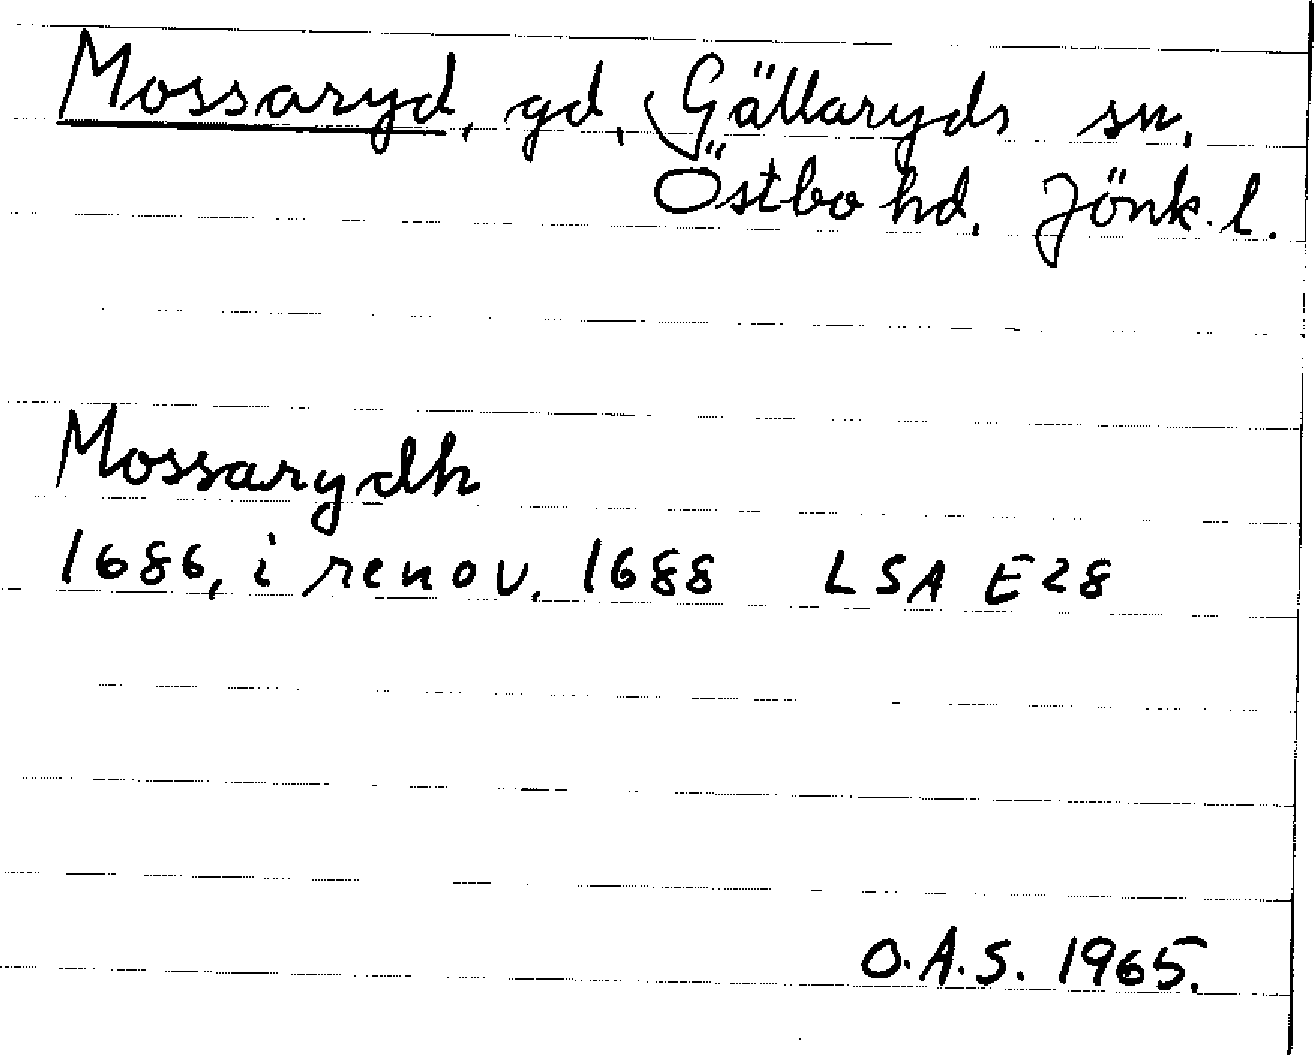 Mossaryd, gd, Gällaryds sn,
Östbo hd, Jönk. l.
Mossarydh
1686, i renov. 1688 LSA E28
O.A.S. 1965.